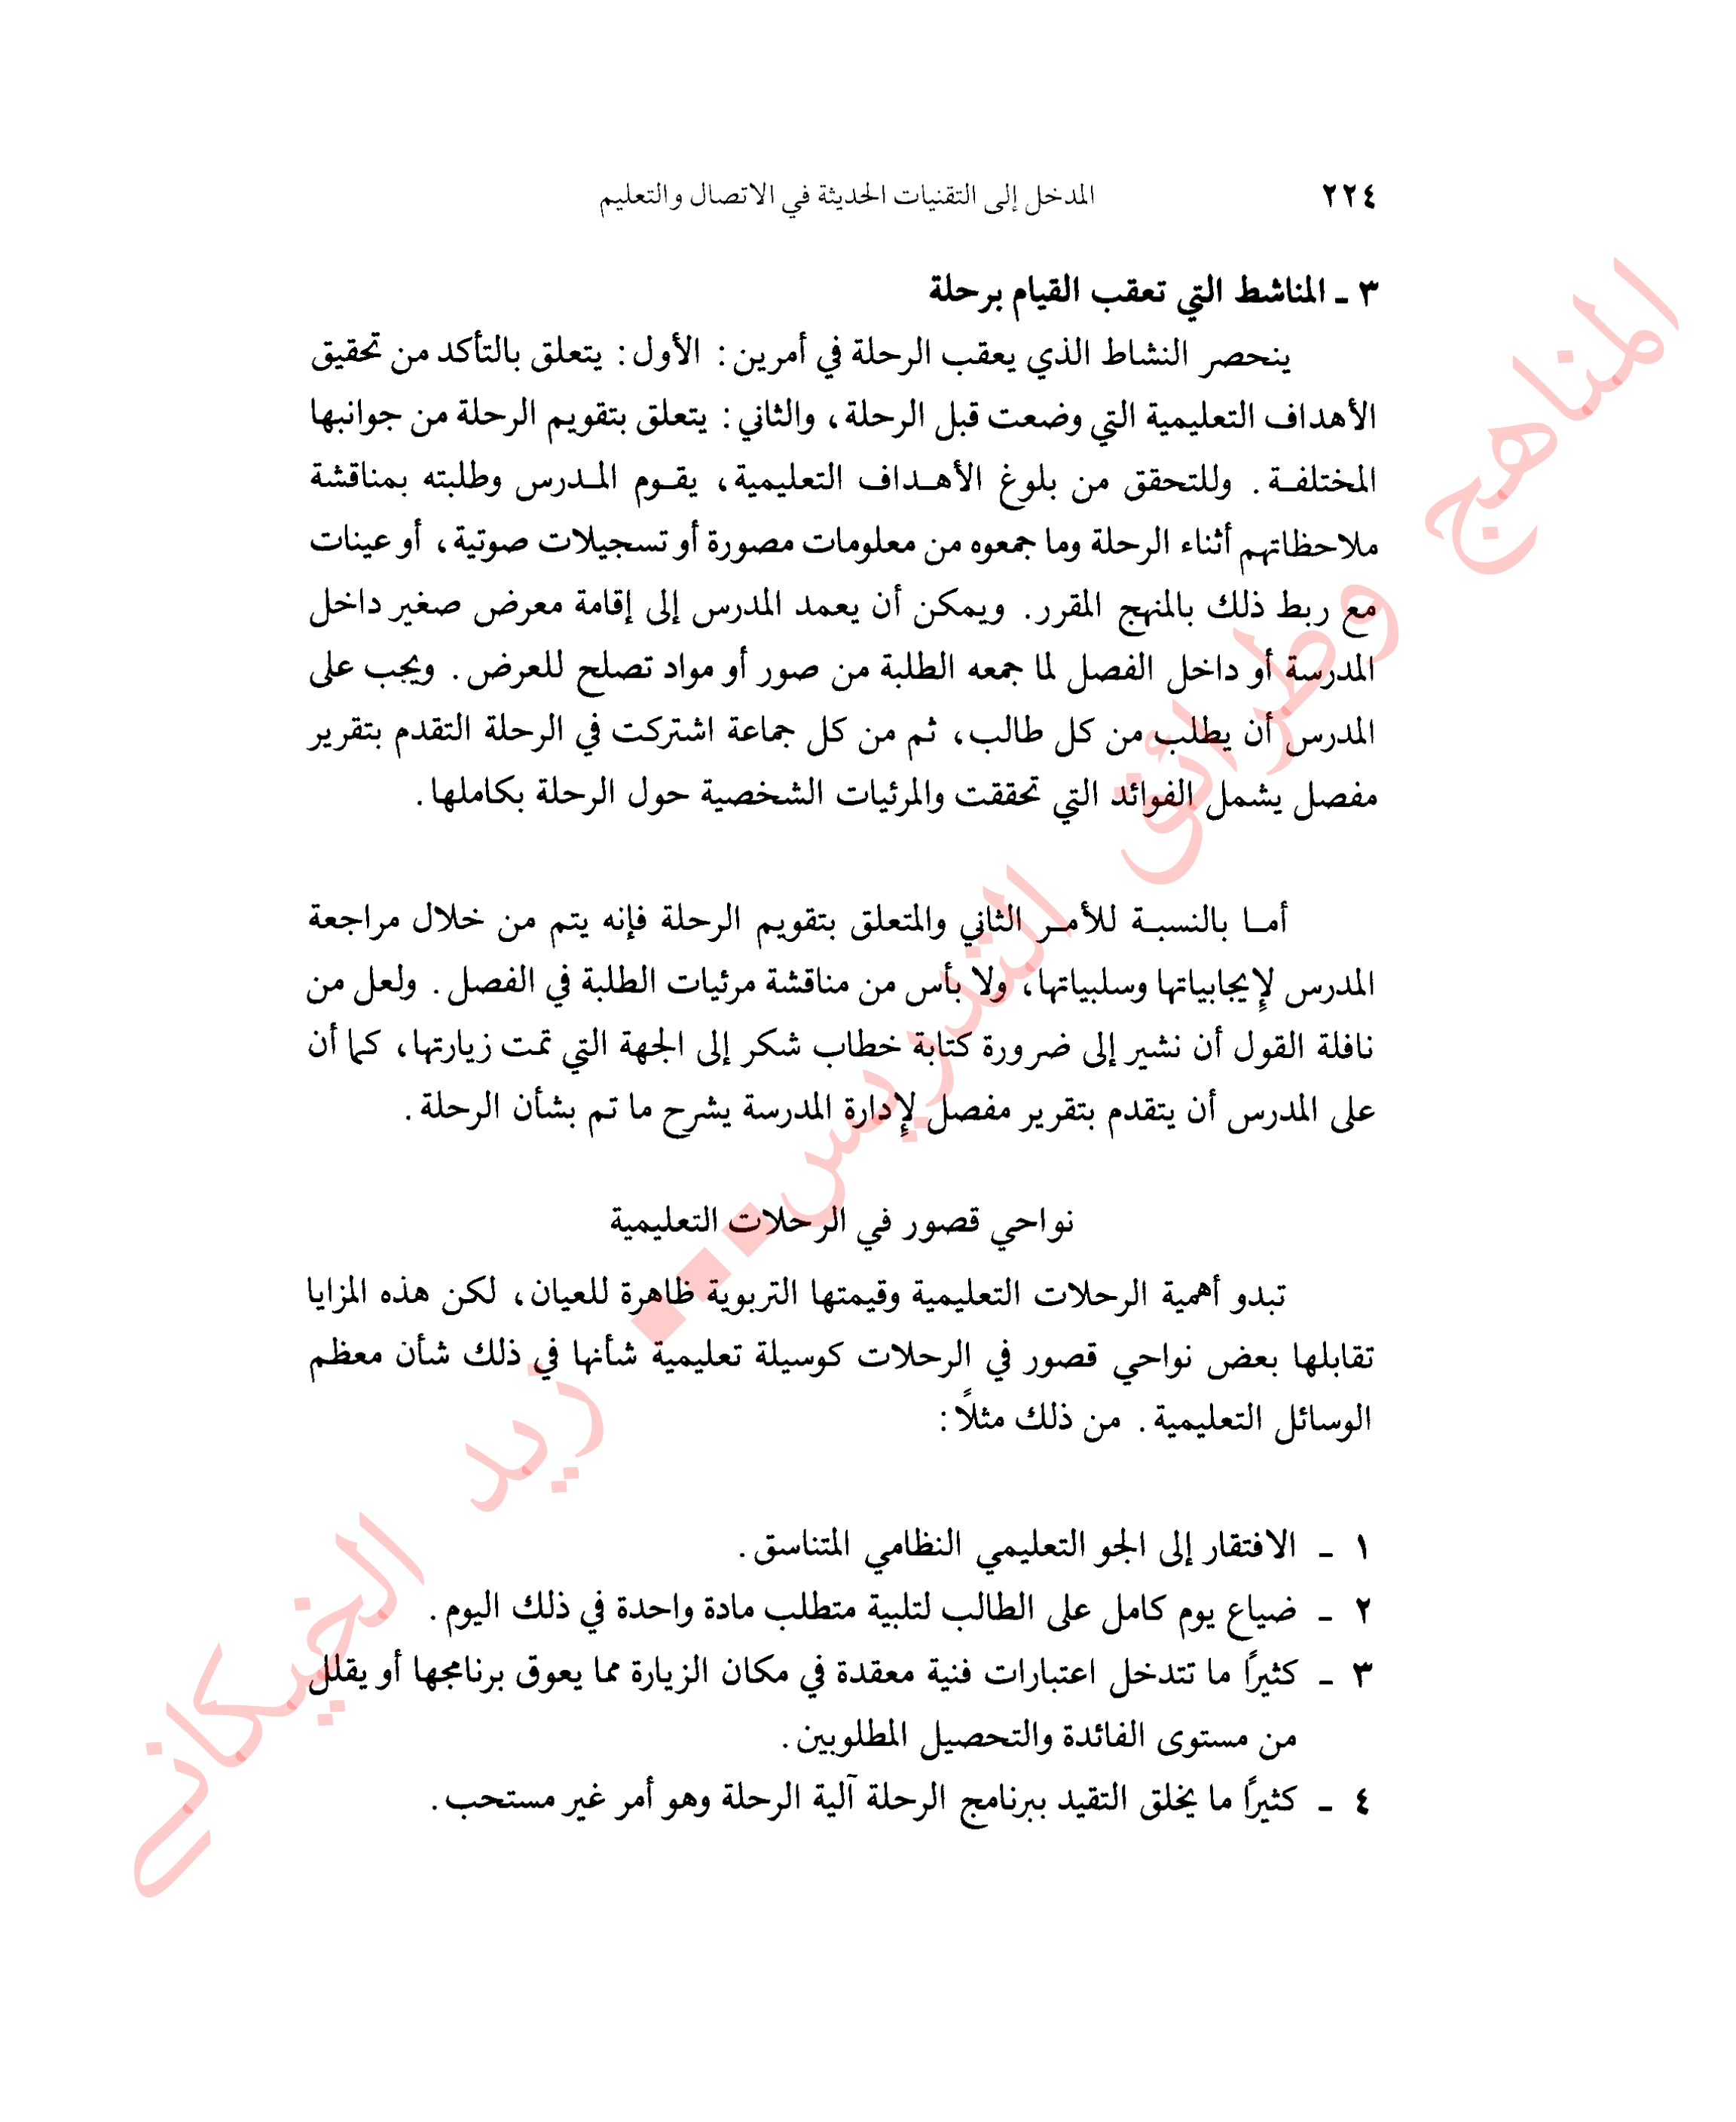 ٢٢٤ المدخل إلى التقنيات الحديثة في الاتصال والتعليم
٣ ـ المناشط التي تعقب القيام برحلة
ينحصر النشاط الذي يعقب الرحلة في أمرين: الأول: يتعلق بالتأكد من تحقيق
الأهداف التعليمية التي وضعت قبل الرحلة، والثاني: يتعلق بتقويم الرحلة من جوانبها
المختلفـة. وللتحقق من بلوغ الأهـداف التعليمية، يقـوم المـدرس وطلبته بمناقشة
ملاحظاتهم أثناء الرحلة وما جمعوه من معلومات مصورة أو تسجيلات صوتية، أو عينات
مع ربط ذلك بالمنهج المقرر. ويمكن أن يعمد المدرس إلى إقامة معرض صغير داخل
المدرسة أو داخل الفصل لما جمعه الطلبة من صور أو مواد تصلح للعرض. ويجب على
المدرس أن يطلب من كل طالب، ثم من كل جماعة اشتركت في الرحلة التقدم بتقرير
مفصل يشمل الفوائد التي تحققت والمرئيات الشخصية حول الرحلة بكاملها.
أمـا بالنسبـة للأمـر الثاني والمتعلق بتقويم الرحلة فإنه يتم من خلال مراجعة
المدرس لإيجابياتها وسلبياتها، ولا بأس من مناقشة مرئيات الطلبة في الفصل. ولعل من
نافلة القول أن نشير إلى ضرورة كتابة خطاب شكر إلى الجهة التي تمت زيارتها، كما أن
على المدرس أن يتقدم بتقرير مفصل لإدارة المدرسة يشرح ما تم بشأن الرحلة.
نواحي قصور في الرحلات التعليمية
تبدو أهمية الرحلات التعليمية وقيمتها التربوية ظاهرة للعيان، لكن هذه المزايا
تقابلها بعض نواحي قصور في الرحلات كوسيلة تعليمية شأنها في ذلك شأن معظم
الوسائل التعليمية. من ذلك مثلاً:
١ ـ الافتقار إلى الجو التعليمي النظامي المتناسق.
٢ ـ ضياع يوم كامل على الطالب لتلبية متطلب مادة واحدة في ذلك اليوم.
٣ ـ كثيرًا ما تتدخل اعتبارات فنية معقدة في مكان الزيارة مما يعوق برنامجها أو يقلل
من مستوى الفائدة والتحصيل المطلوبين.
٤ ـ كثيرًا ما يخلق التقيد ببرنامج الرحلة آلية الرحلة وهو أمر غير مستحب.
المناهج وطرائق التدريس... زيد الخيكاني